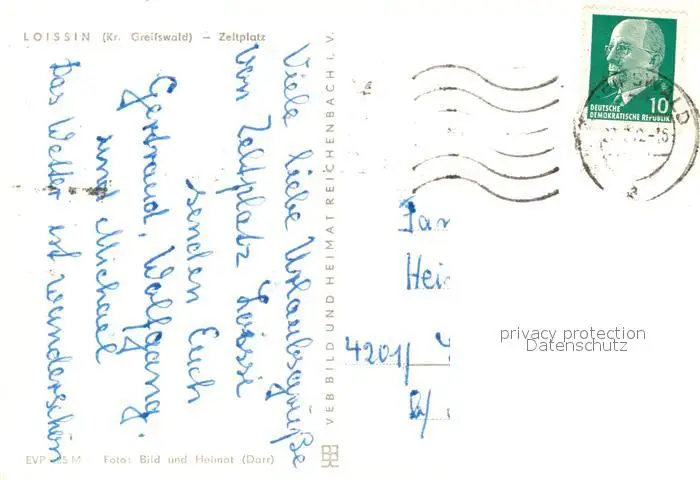 LOISSIN (Kr. Greifswald) – Zeltplatz
Viele liebe Urlaubsgrüße
vom Zeltplatz Loissi
senden Euch
Gertraud, Wolfgang.
und Michael
Das Wetter ist wunderschön
EVP 25 M Foto: Bild und Heimat (Darr)
VEB BILD UND HEIMAT REICHENBACH I. V.
DEUTSCHE
DEMOKRATISCHE REPUBLIK
10
Fam
Hei
4201/
privacy protection
Datenschutz